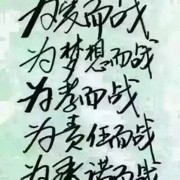 为爱而战
为梦想而战
为孝而战
为责任而战
为承诺而战